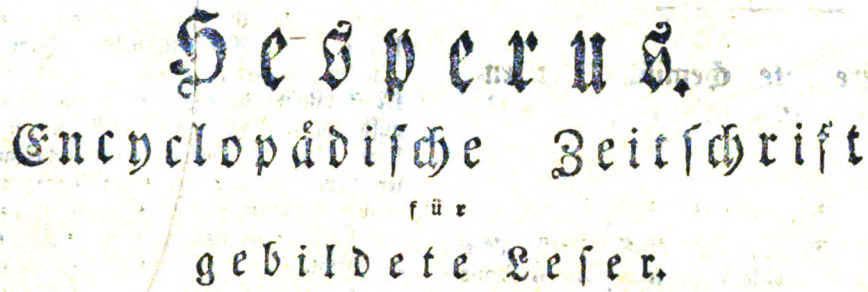 Hesperus.
Encyclopädische Zeitschrift
für
gebildete Leser.